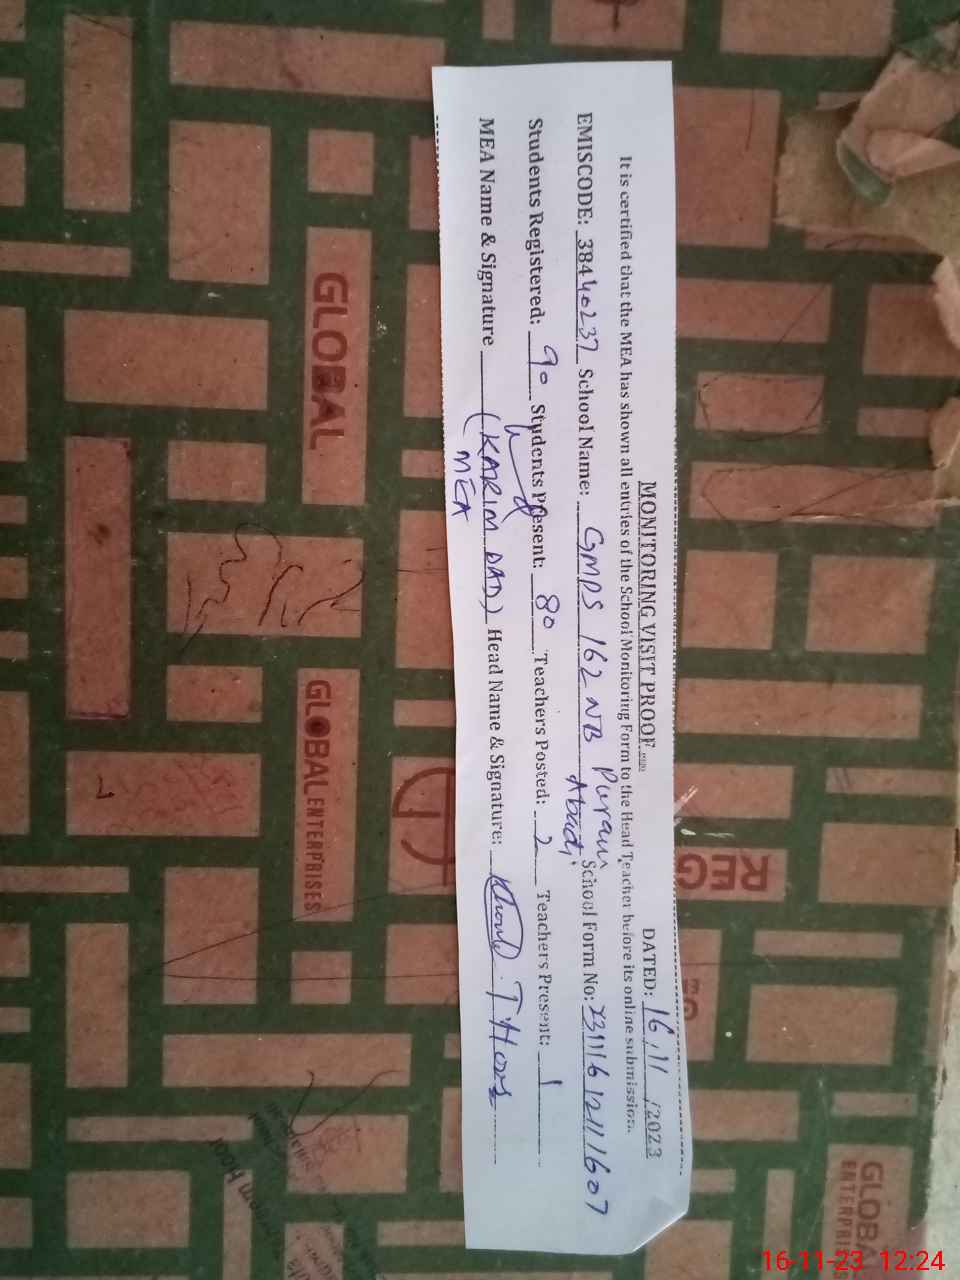 MONITORING VISIT PROOF
DATED: 16/11/2023
It is certified that the MEA has shown all entries of the School Monitoring Form to the Head Teacher before its online submission.
EMISCODE: 38440237 School Name: GMPS 162 NB Purani Abadi School Form No:
Students Registered: 90 Students Present: 80 Teachers Posted: 2 Teachers Present: 1
MEA Name & Signature (KARIM DAD) Head Name & Signature:
MEA
GLOBAL
GLOBAL ENTERPRISES
REG
GLOBAL
16-11-23 12:24